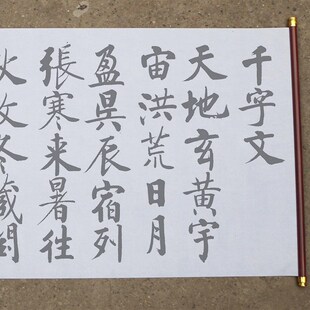 千字文
天地玄黄宇
宙洪荒日月
盈昃辰宿列
張寒来暑往
收冬藏閏